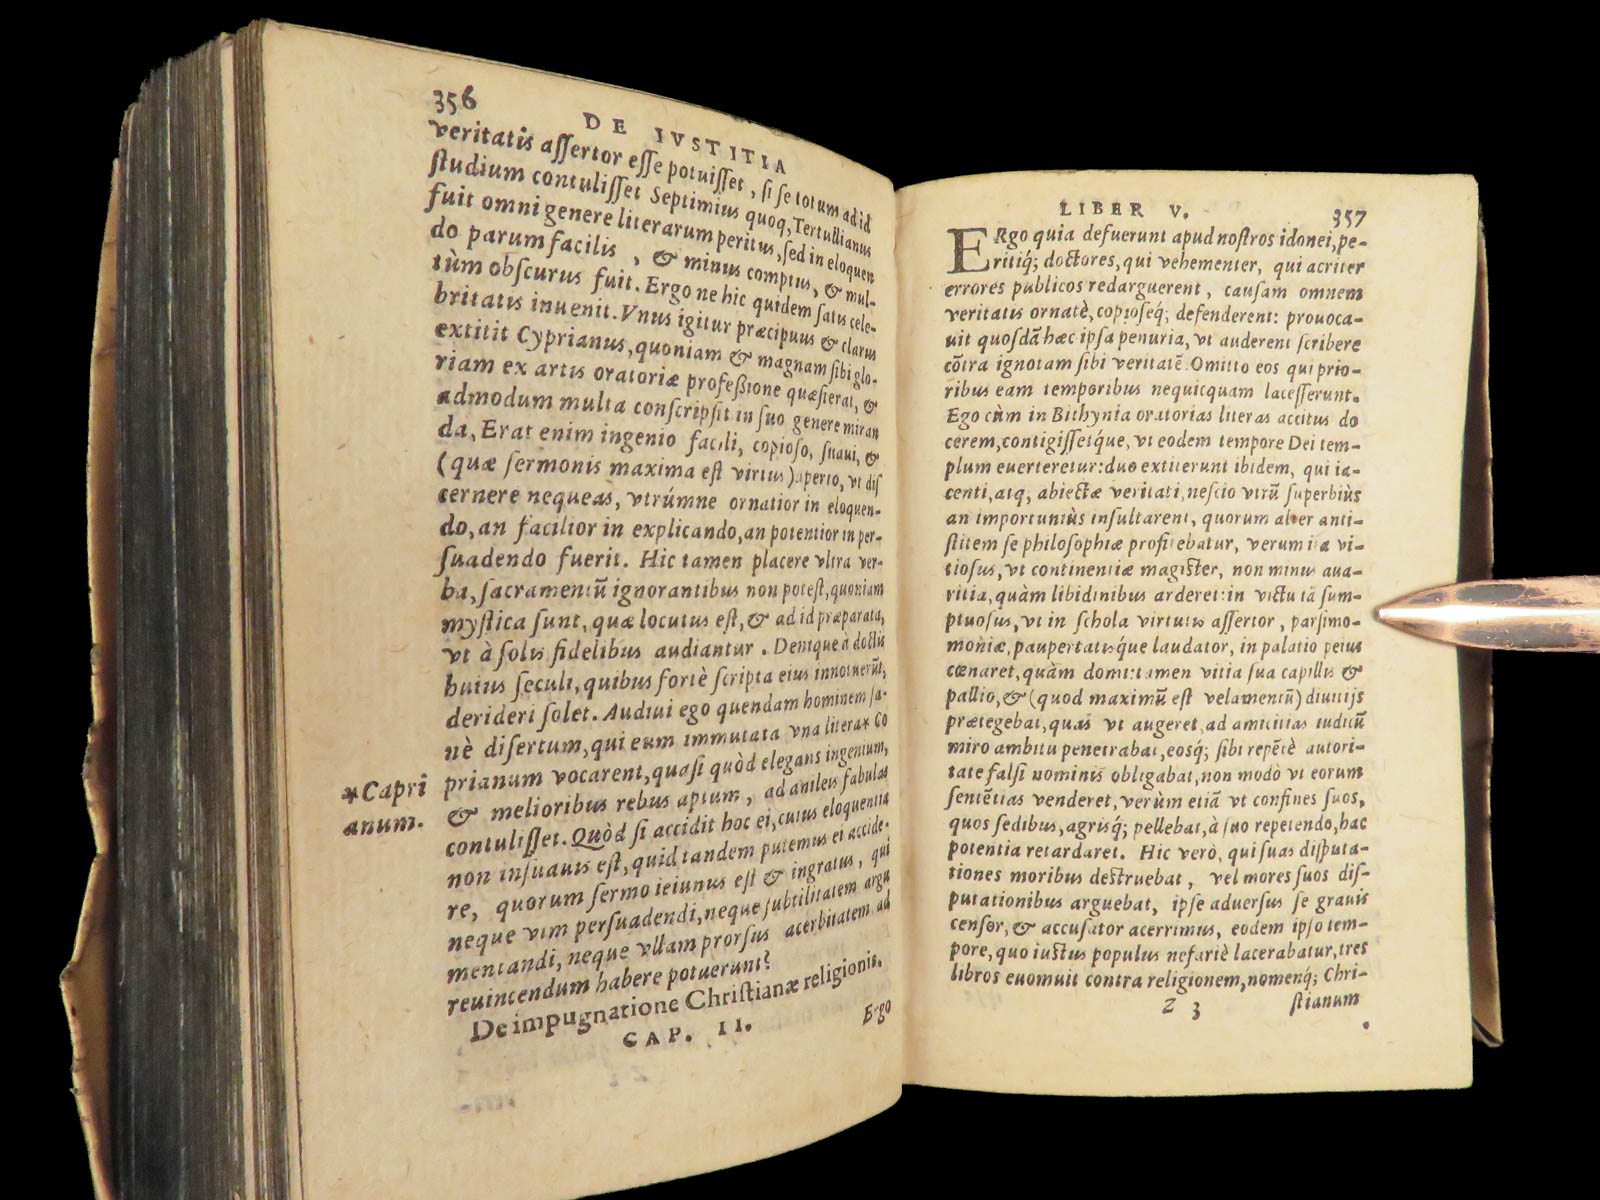 356
DE IVSTITIA
veritatis aſſertor eſſe potuiſſet, ſi ſe totum ad id
ſtudium contuliſſet Septimius quoq; Tertullianus
fuit omni genere literarum peritus, ſed in eloquen
do parum facilis, & minus comptus, & mul-
tùm obſcurus fuit. Ergo ne hic quidem ſatis cele-
britatis inuenit. Vnus igitur præcipuus & clarus
extitit Cyprianus, quoniam & magnam ſibi glo-
riam ex artis oratoriæ profeßione quæſierat, &
admodum multa conſcripſit in ſuo genere miran
da, Erat enim ingenio facili, copioſo, ſuaui, &
(quæ ſermonis maxima eſt virtus) aperto, vt diſ
cernere nequeas, vtrúmne ornatior in eloquen-
do, an facilior in explicando, an potentior in per-
ſuadendo fuerit. Hic tamen placere vltra ver-
ba, ſacramentū ignorantibus non poteſt, quoniam
myſtica ſunt, quæ locutus eſt, & ad id præparata,
vt à ſolis fidelibus audiantur. Denique à doctis
huius ſeculi, quibus fortè ſcripta eius innotuerūt,
derideri ſolet. Audiui ego quendam hominem ſa-
nè diſertum, qui eum immutata vna litera* Co
prianum vocarent, quaſi quòd elegans ingenium,
& melioribus rebus aptum, ad anileis fabulas
contuliſſet. Quòd ſi accidit hoc ei, cuius eloquentia
non inſuauis eſt, quid tandem putemus ei accide-
re, quorum ſermo ieiunus eſt & ingratus, qui
neque vim perſuadendi, neque ſubtilitatem argu
mentandi, neque vllam prorſus acerbitatem ad
reuincendum habere potuerunt?
*Capri
anum.
De impugnatione Chriſtianæ religionis.
CAP. II.
Ergo
LIBER V.
357
ERgo quia defuerunt apud noſtros idonei, pe-
ritiq́; doctores, qui vehementer, qui acriter
errores publicos redarguerent, cauſam omnem
veritatis ornatè, copioſeq́; defenderent: prouoca-
uit quoſdā hæc ipſa penuria, vt auderent ſcribere
cōtra ignotam ſibi veritatē. Omitto eos qui prio-
ribus eam temporibus nequicquam laceſſerunt.
Ego cùm in Bithynia oratorias literas accitus do
cerem, contigiſſetq́ue, vt eodem tempore Dei tem-
plum euerteretur: duo extiterunt ibidem, qui ia-
centi, atq; abiectæ veritati, neſcio vtrū ſuperbiùs
an importuniùs inſultarent, quorum alter anti-
ſtitem ſe philoſophiæ profitebatur, verum ita vi-
tioſus, vt continentiæ magiſter, non minus aua-
ritia, quàm libidinibus arderet: in victu tā ſum-
ptuoſus, vt in ſchola virtutis aſſertor, parſimo-
moniæ, paupertatisq́ue laudator, in palatio peius
cœnaret, quàm domi: tamen vitia ſua capillis &
pallio, & (quod maximū eſt velamentū) diuitijs
prætegebat, quas vt augeret, ad amicitias iudicū
miro ambitu penetrabat, eosq́; ſibi repētè autori-
tate falſi nominis obligabat, non modò vt eorum
ſentētias venderet, verùm etiā vt confines ſuos,
quos ſedibus, agrisq́; pellebat, à ſuo repetendo, hac
potentia retardaret. Hic verò, qui ſuas diſputa-
tiones moribus deſtruebat, vel mores ſuos diſ-
putationibus arguebat, ipſe aduerſus ſe grauis
cenſor, & accuſator acerrimus, eodem ipſo tem-
pore, quo iuſtus populus nefariè lacerabatur, tres
libros euomuit contra religionem, nomenq́; Chri-
Z 3
ſtianum